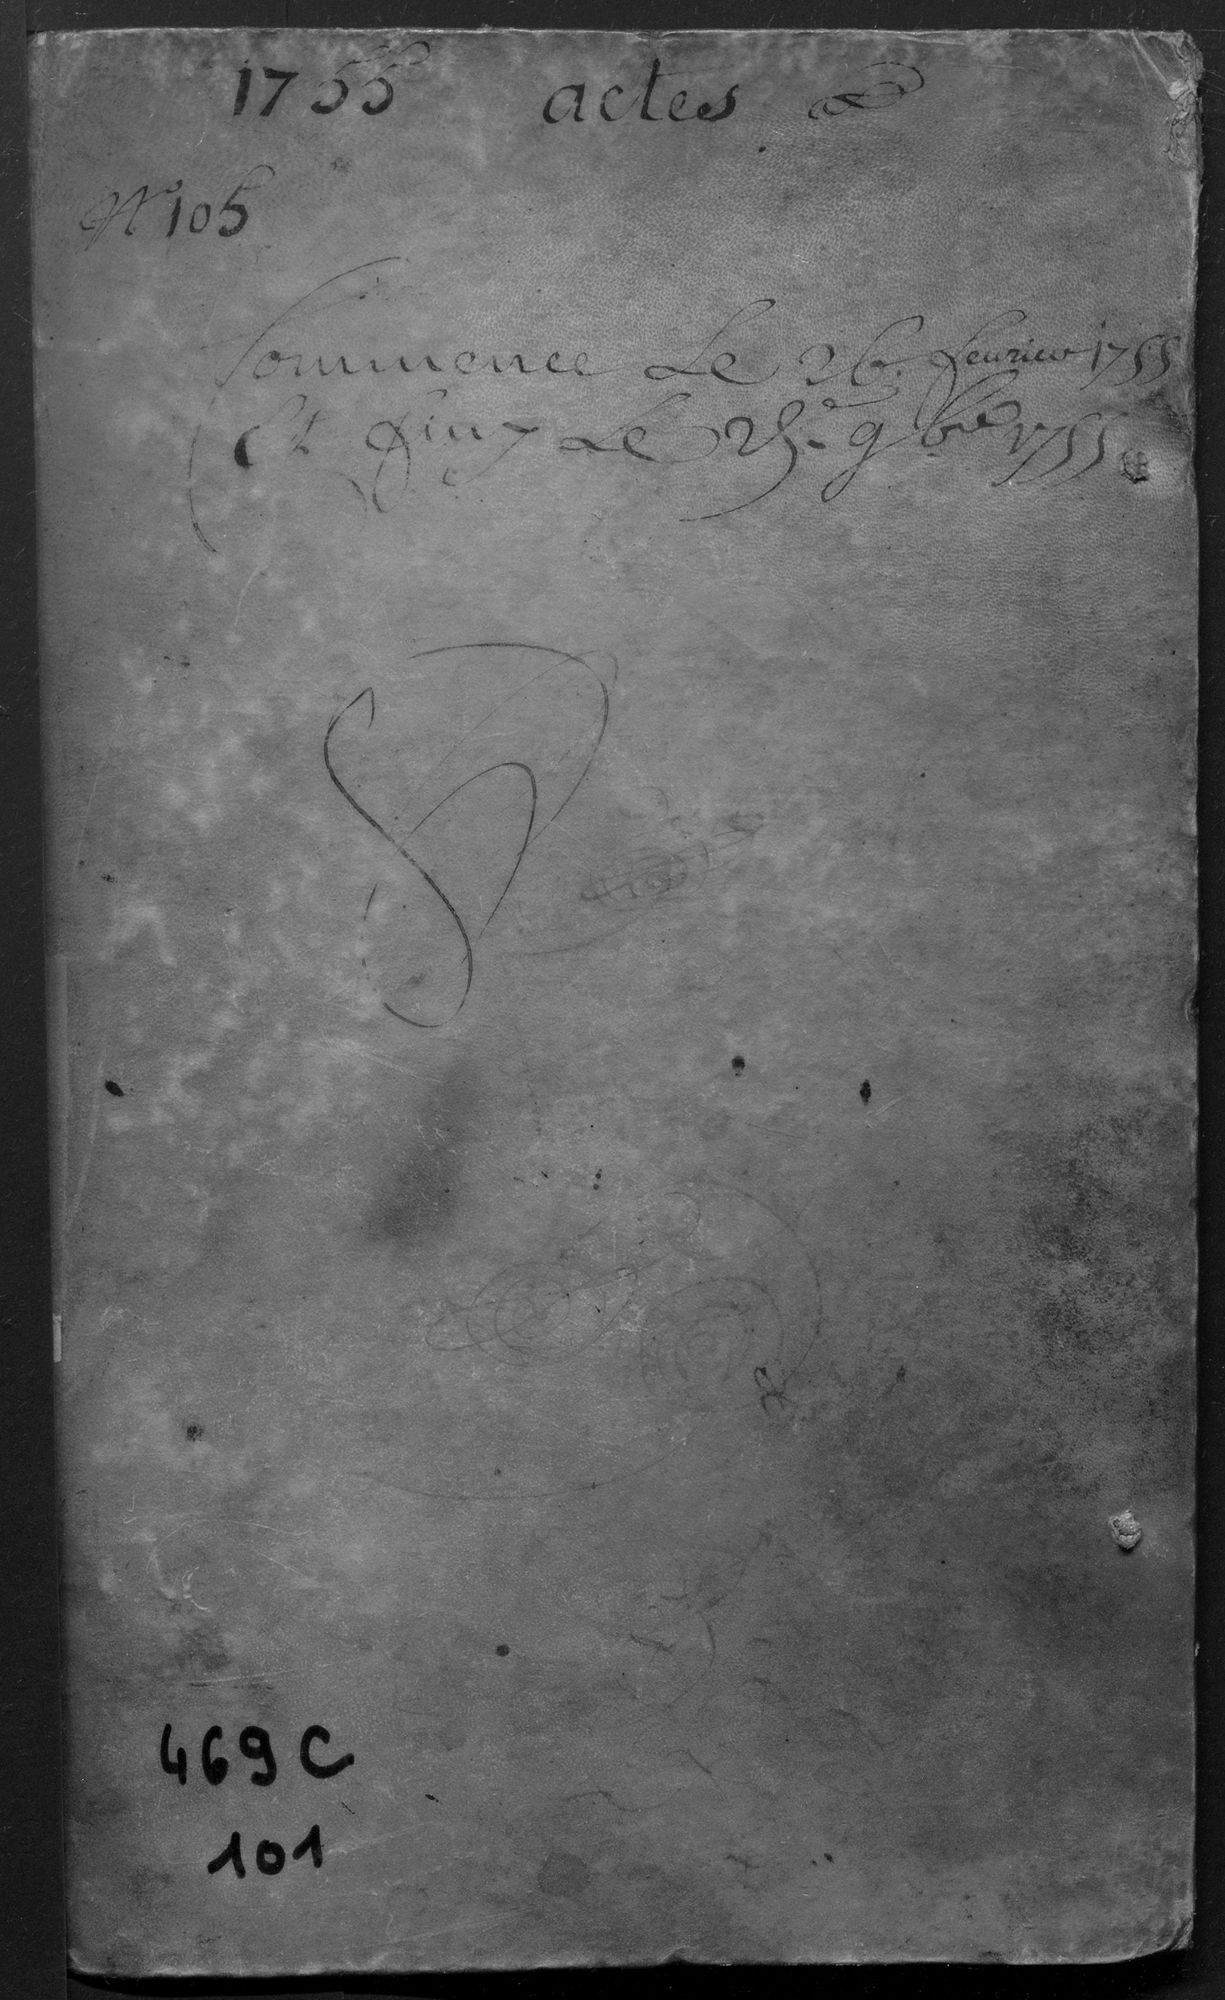 1755 actes
N° 105
Commence Le 26e feurier 1755
Et finy Le 25e 9bre 1755
469 C
101